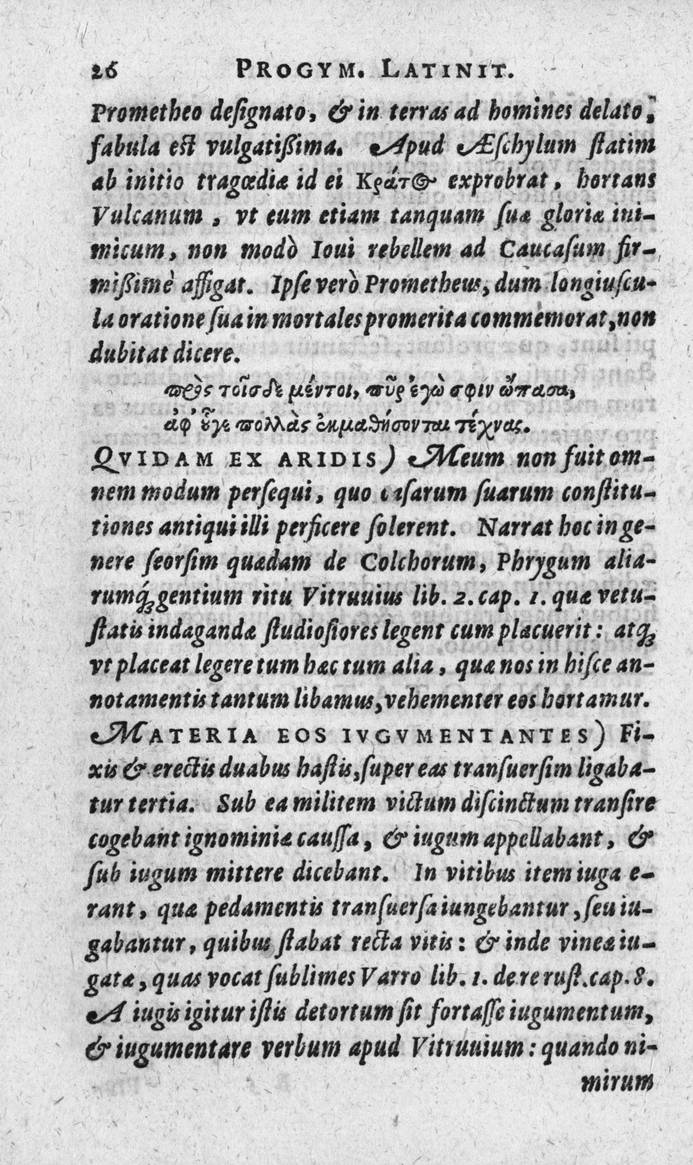 26 PROGYM. LATINIT.
Prometheo deſignato, & in terras ad homines delato,
fabula eſt vulgatißima. Apud Æſchylum ſtatim
ab initio tragœdiæ id ei Κράτος exprobrat, hortans
Vulcanum, vt eum etiam tanquam ſuæ gloriæ ini-
micum, non modò Ioui rebellem ad Caucaſum fir-
mißimè affigat. Ipſe verò Prometheus, dum longiuſcu-
la oratione ſua in mortales promerita commemorat, non
dubitat dicere.
πρὸς τοῖσδε μέντοι, πῦρ ἐγὼ σφιν ὤπασα,
ἀφ' οὗγε πολλὰς ἐκμαθήσονται τέχνας.
QVIDAM EX ARIDIS) Meum non fuit om-
nem modum perſequi, quo caſarum ſuarum conſtitu-
tiones antiqui illi perficere ſolerent. Narrat hoc in ge-
nere ſeorſim quædam de Colchorum, Phrygum alia-
rumq́; gentium ritu Vitruuius lib. 2. cap. 1. quæ vetu-
ſtatis indagandæ ſtudioſiores legent cum placuerit: atq;
vt placeat legere tum hæc tum alia, quæ nos in hiſce an-
notamentis tantum libamus, vehementer eos hortamur.
MATERIA EOS IVGVMENTANTES) Fi-
xis & erectis duabus haſtis, ſuper eas tranſuerſim ligaba-
tur tertia. Sub ea militem victum diſcinctum tranſire
cogebant ignominiæ cauſſa, & iugum appellabant, &
ſub iugum mittere dicebant. In vitibus item iuga e-
rant, quæ pedamentis tranſuerſa iungebantur, ſeu iu-
gabantur, quibus ſtabat recta vitis: & inde vineæ iu-
gatæ, quas vocat ſublimes Varro lib. 1. de re ruſt. cap. 8.
A iugis igitur iſtis detortum ſit fortaſſe iugumentum,
& iugumentare verbum apud Vitruuium: quando ni-
mirum